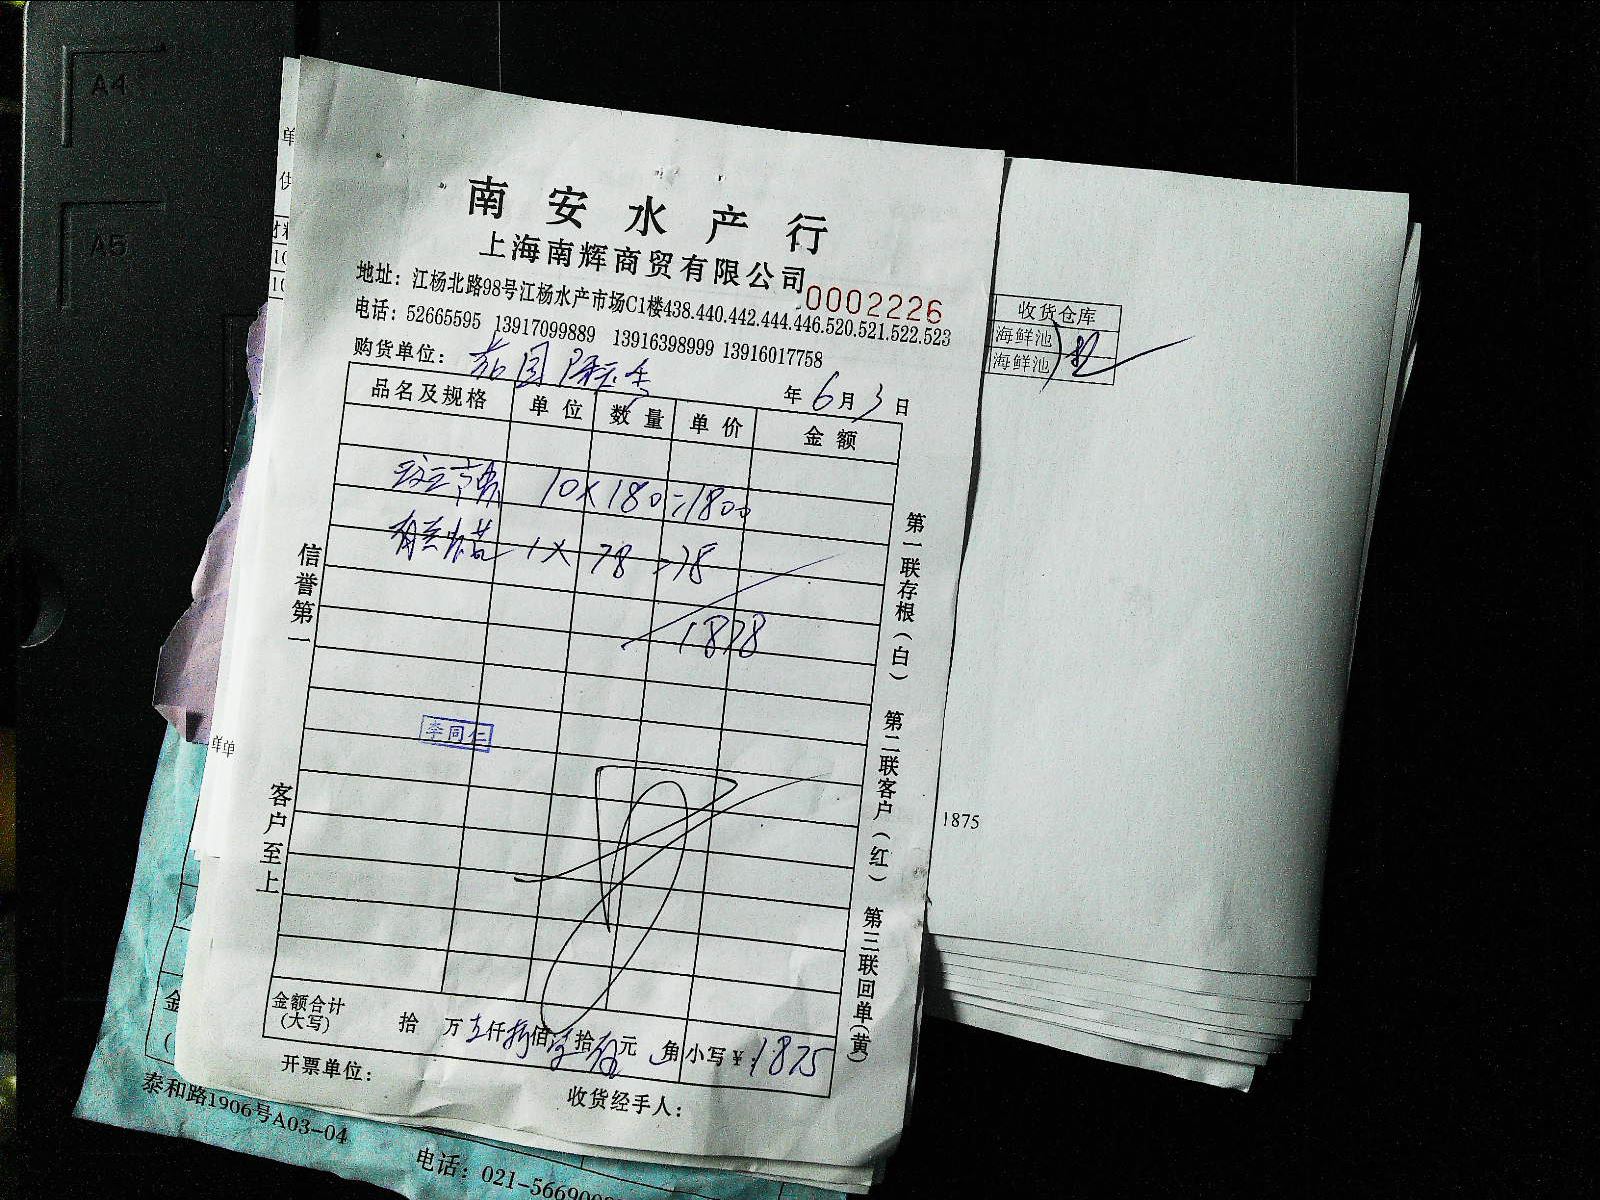 南安水产行
上海南辉商贸有限公司
0002226
地址：江杨北路98号江杨水产市场C1楼438.440.442.444.446.520.521.522.523
电话：52665595 13917099889 13916398999 13916017758
购货单位：
年6月3日
品名及规格 单位 数量 单价 金额
10×180=1800
1×78=78
1878
李同仁
金额合计(大写) 拾 万 仟 佰 拾 元 角 小写￥：1875
开票单位：
收货经手人：
信誉第一
客户至上
第一联存根(白) 第二联客户(红) 第三联回单(黄)
收货仓库
海鲜池
海鲜池
1875
单
供
10
10
单
金
泰和路1906号A03-04
电话：021-566900
A4
A5